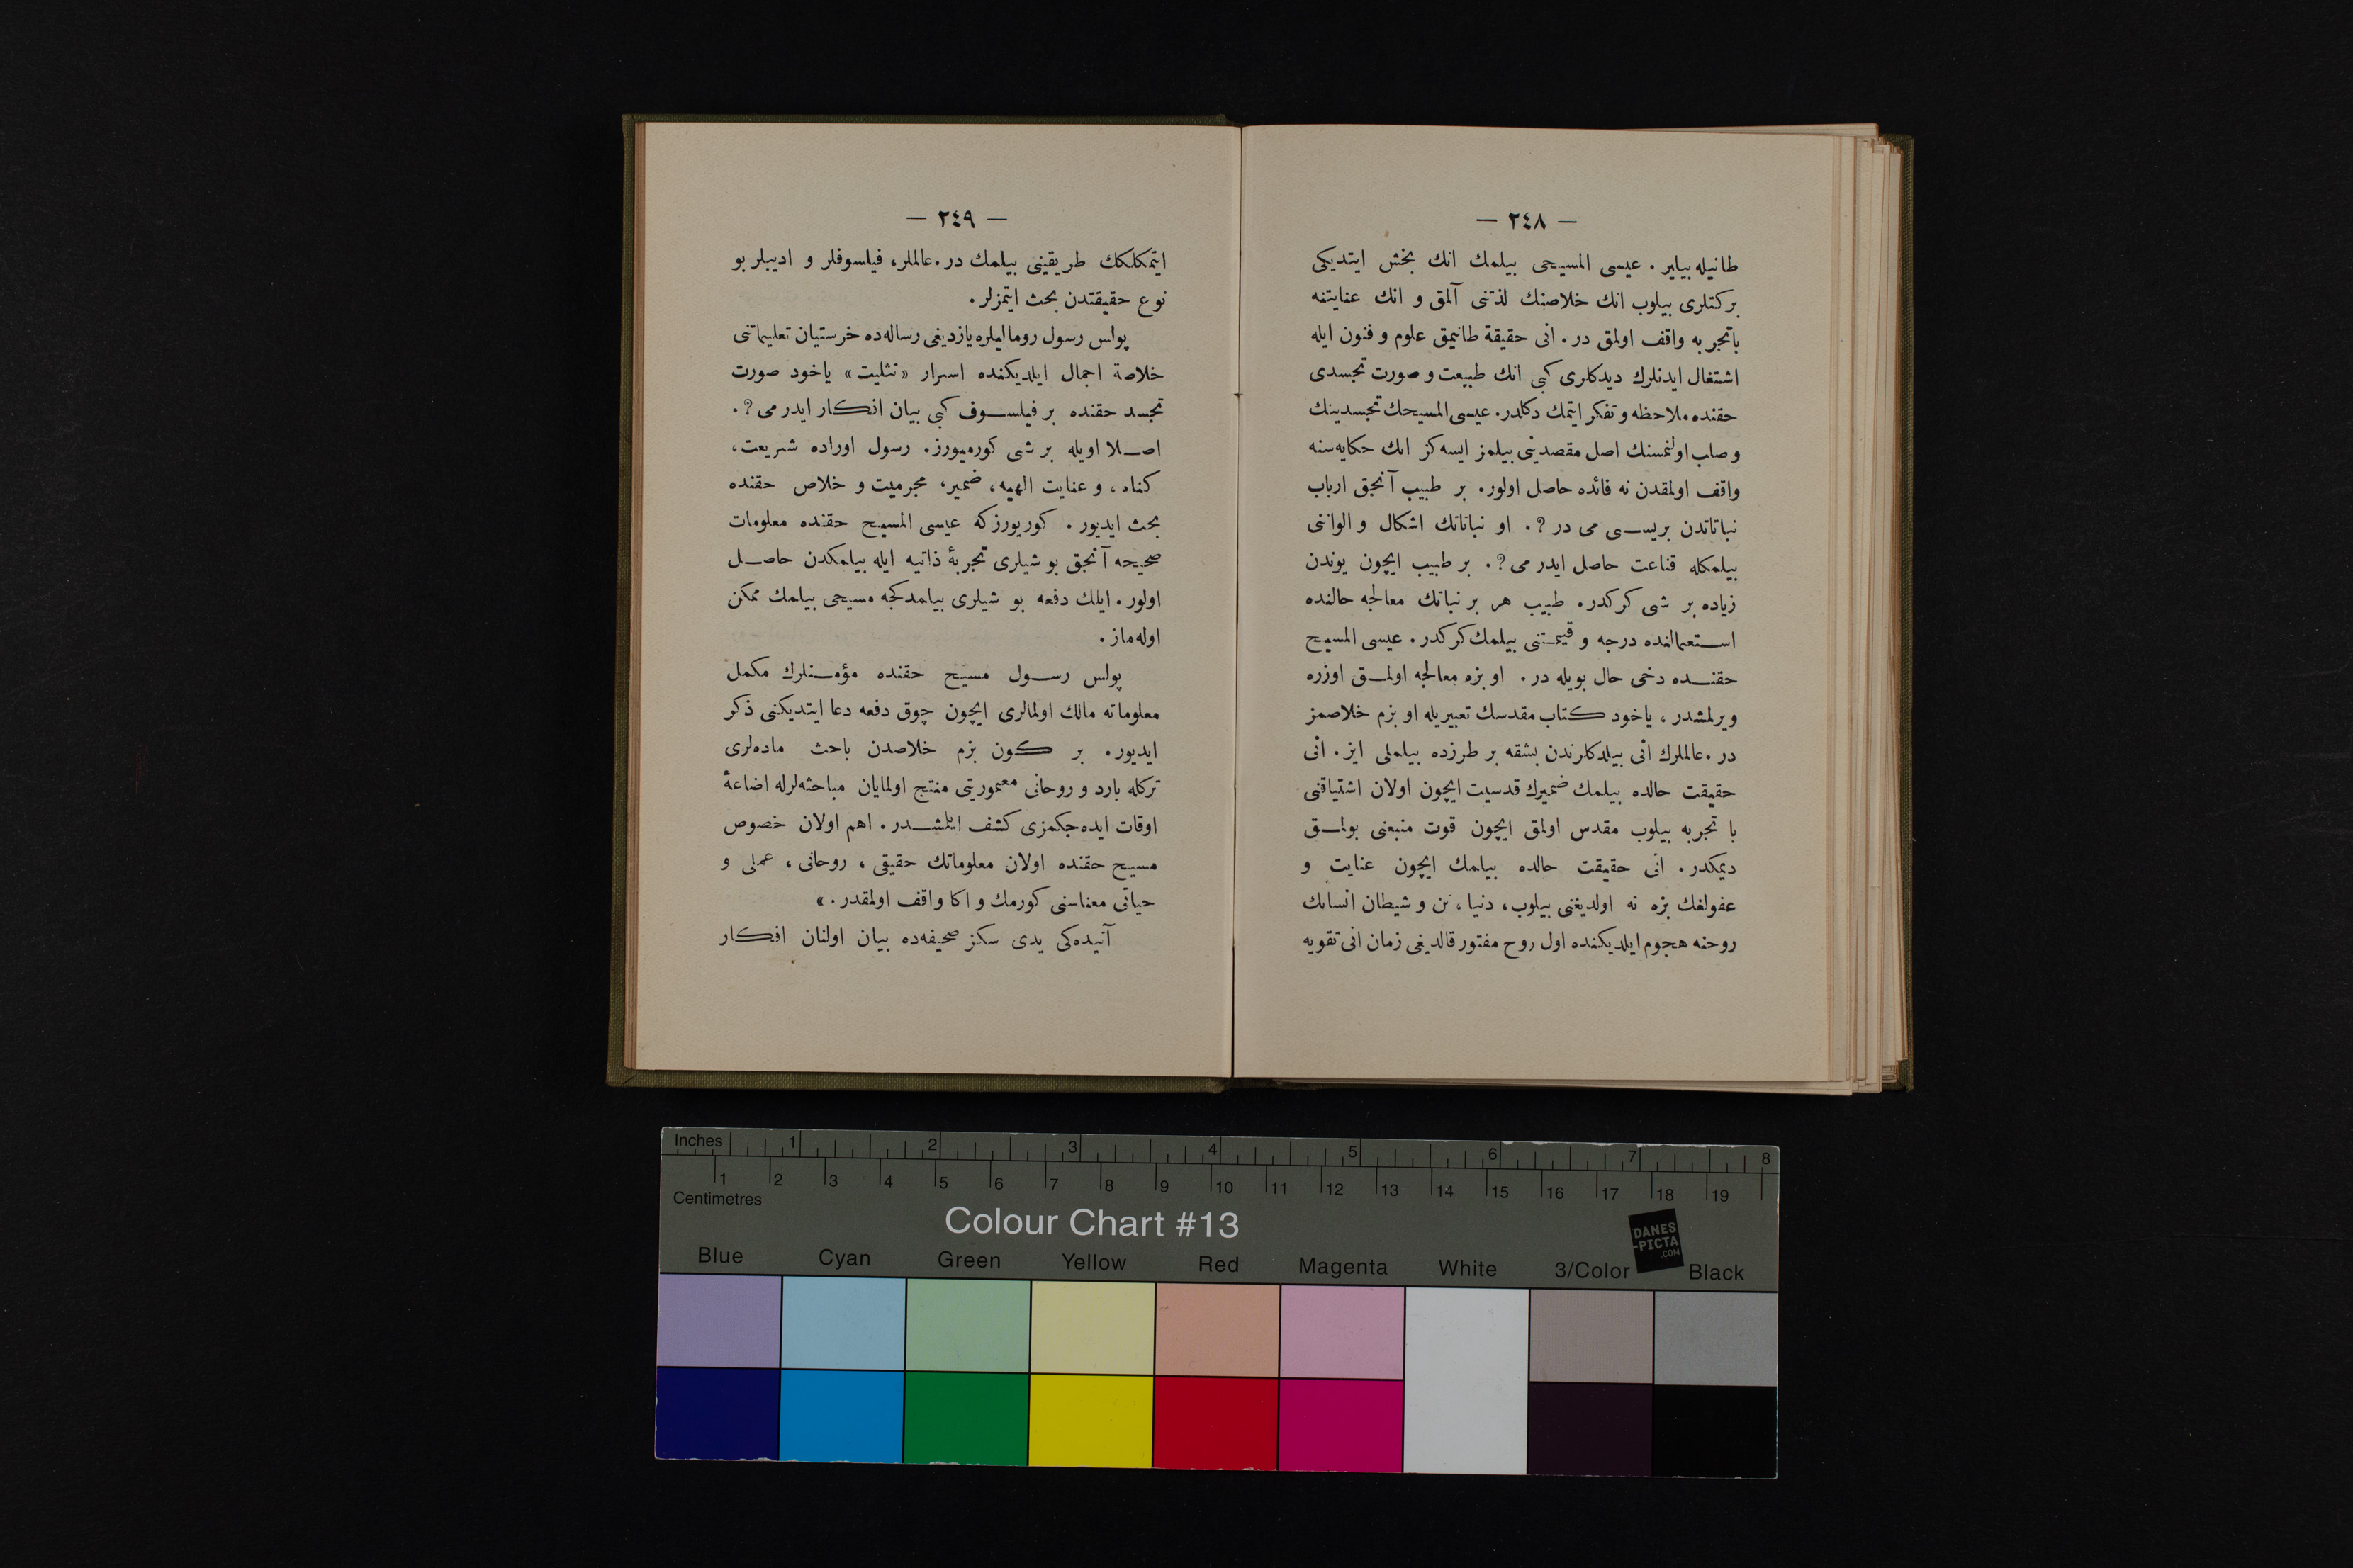 — ٢٤٨ —
طانيله بيلير . عيسى المسيحى بيلمك انك بخش ايتديكى
بركتلرى بيلوب انك خلاصنك لذتنى آلمق و انك عنايتنه
باتجربه واقف اولمق در . انى حقيقة طانيمق علوم و فنون ايله
اشتغال ايدنلرك ديدكلرى كبى انك طبيعت و صورت تجسدى
حقنده ملاحظه و تفكر ايتمك دكلدر. عيسى المسيحك تجسدينك
وصلب اولنمسنك اصل مقصدينى بيلمز ايسه كز انك حكايه سنه
واقف اولمقدن نه فائده حاصل اولور. بر طبيب آنجق ارباب
نباتاتدن بريسى مى در ?. او نباتاتك اشكال و الواننى
بيلمكله قناعت حاصل ايدر مى ?. بر طبيب ايچون بوندن
زياده بر شى كركدر. طبيب هر بر نباتك معالجه حالنده
استعمالنده درجه و قيمتنى بيلمك كركدر. عيسى المسيح
حقنده دخى حال بويله در . او بزه معالجه اولمق اوزره
ويرلمشدر ، ياخود كتاب مقدسك تعبيريله او بزم خلاصمز
در . عالملرك انى بيلدكلرندن بشقه بر طرزده بيلملى ايز . انى
حقيقت حالده بيلمك ضميرك قدسيت ايچون اولان اشتياقنى
با تجربه بيلوب مقدس اولمق ايچون قوت منبعنى بولمق
ديمكدر. انى حقيقت حالده بيلمك ايچون عنايت و
عفولغك بزه نه اولديغنى بيلوب، دنيا ، تن و شيطان انسانك
روحنه هجوم ايلديكنده اول روح مفتور قالديغى زمان انى تقويه
— ٢٤٩ —
ايتمكلكك طريقينى بيلمك در . عالملر، فيلسوفلر و اديبلر بو
نوع حقيقتدن بحث ايتمزلر .
پولس رسول روماليلره يازديغى رساله ده خرستيان تعليماتنى
خلاصة اجمال ايلديكنده اسرار «تثليت» ياخود صورت
تجسد حقنده بر فيلسوف كبى بيان افكار ايدر مى ? .
اصلا اويله بر شى كورميورز. رسول اوراده شريعت،
كناه ، و عنايت الهيه ، ضمير، مجرميت و خلاص حقنده
بحث ايديور . كوريورز كه عيسى المسيح حقنده معلومات
صحيحه آنجق بو شيلرى تجربۀ ذاتيه ايله بيلمكدن حاصل
اولور . ايلك دفعه بو شيلرى بيلمدكجه مسيحى بيلمك ممكن
اوله ماز .
پولس رسول مسيح حقنده مؤمنلرك مكمل
معلوماته مالك اولمالرى ايچون چوق دفعه دعا ايتديكنى ذكر
ايديور. بر كون بزم خلاصدن باحث ماده لرى
تركله بارد و روحانى معموريتى منتج اولمايان مباحثه لرله اضاعۀ
اوقات ايده جكمزى كشف ايلمشدر . اهم اولان خصوص
مسيح حقنده اولان معلوماتك حقيقى ، روحانى ، عملى و
حياتى معناسنى كورمك و اكا واقف اولمقدر . »
آتيده كى يدى سكز صحيفه ده بيان اولنان افكار
Inches 1 2 3 4 5 6 7 8
1 2 3 4 5 6 7 8 9 10 11 12 13 14 15 16 17 18 19
Centimetres
Colour Chart #13
DANES
-PICTA
.COM
Blue Cyan Green Yellow Red Magenta White 3/Color Black